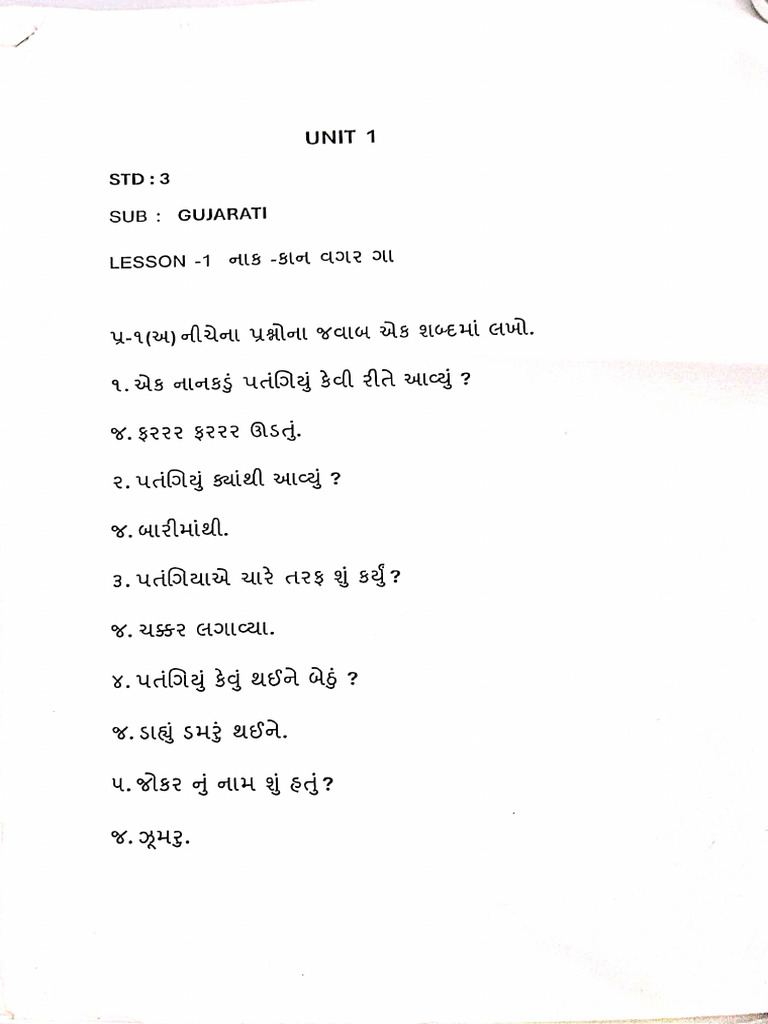 UNIT 1
STD : 3
SUB : GUJARATI
LESSON -1 નાક -કાન વગર ગા
પ્ર-૧(અ) નીચેના પ્રશ્નોના જવાબ એક શબ્દમાં લખો.
૧. એક નાનકડું પતંગિયું કેવી રીતે આવ્યું ?
જ. ફરરર ફરરર ઊડતું.
૨. પતંગિયું ક્યાંથી આવ્યું ?
જ. બારીમાંથી.
૩. પતંગિયાએ ચારે તરફ શું કર્યું ?
જ. ચક્કર લગાવ્યા.
૪. પતંગિયું કેવું થઈને બેઠું ?
જ. ડાહ્યું ડમરું થઈને.
૫. જોકર નું નામ શું હતું ?
જ. ઝૂમરુ.